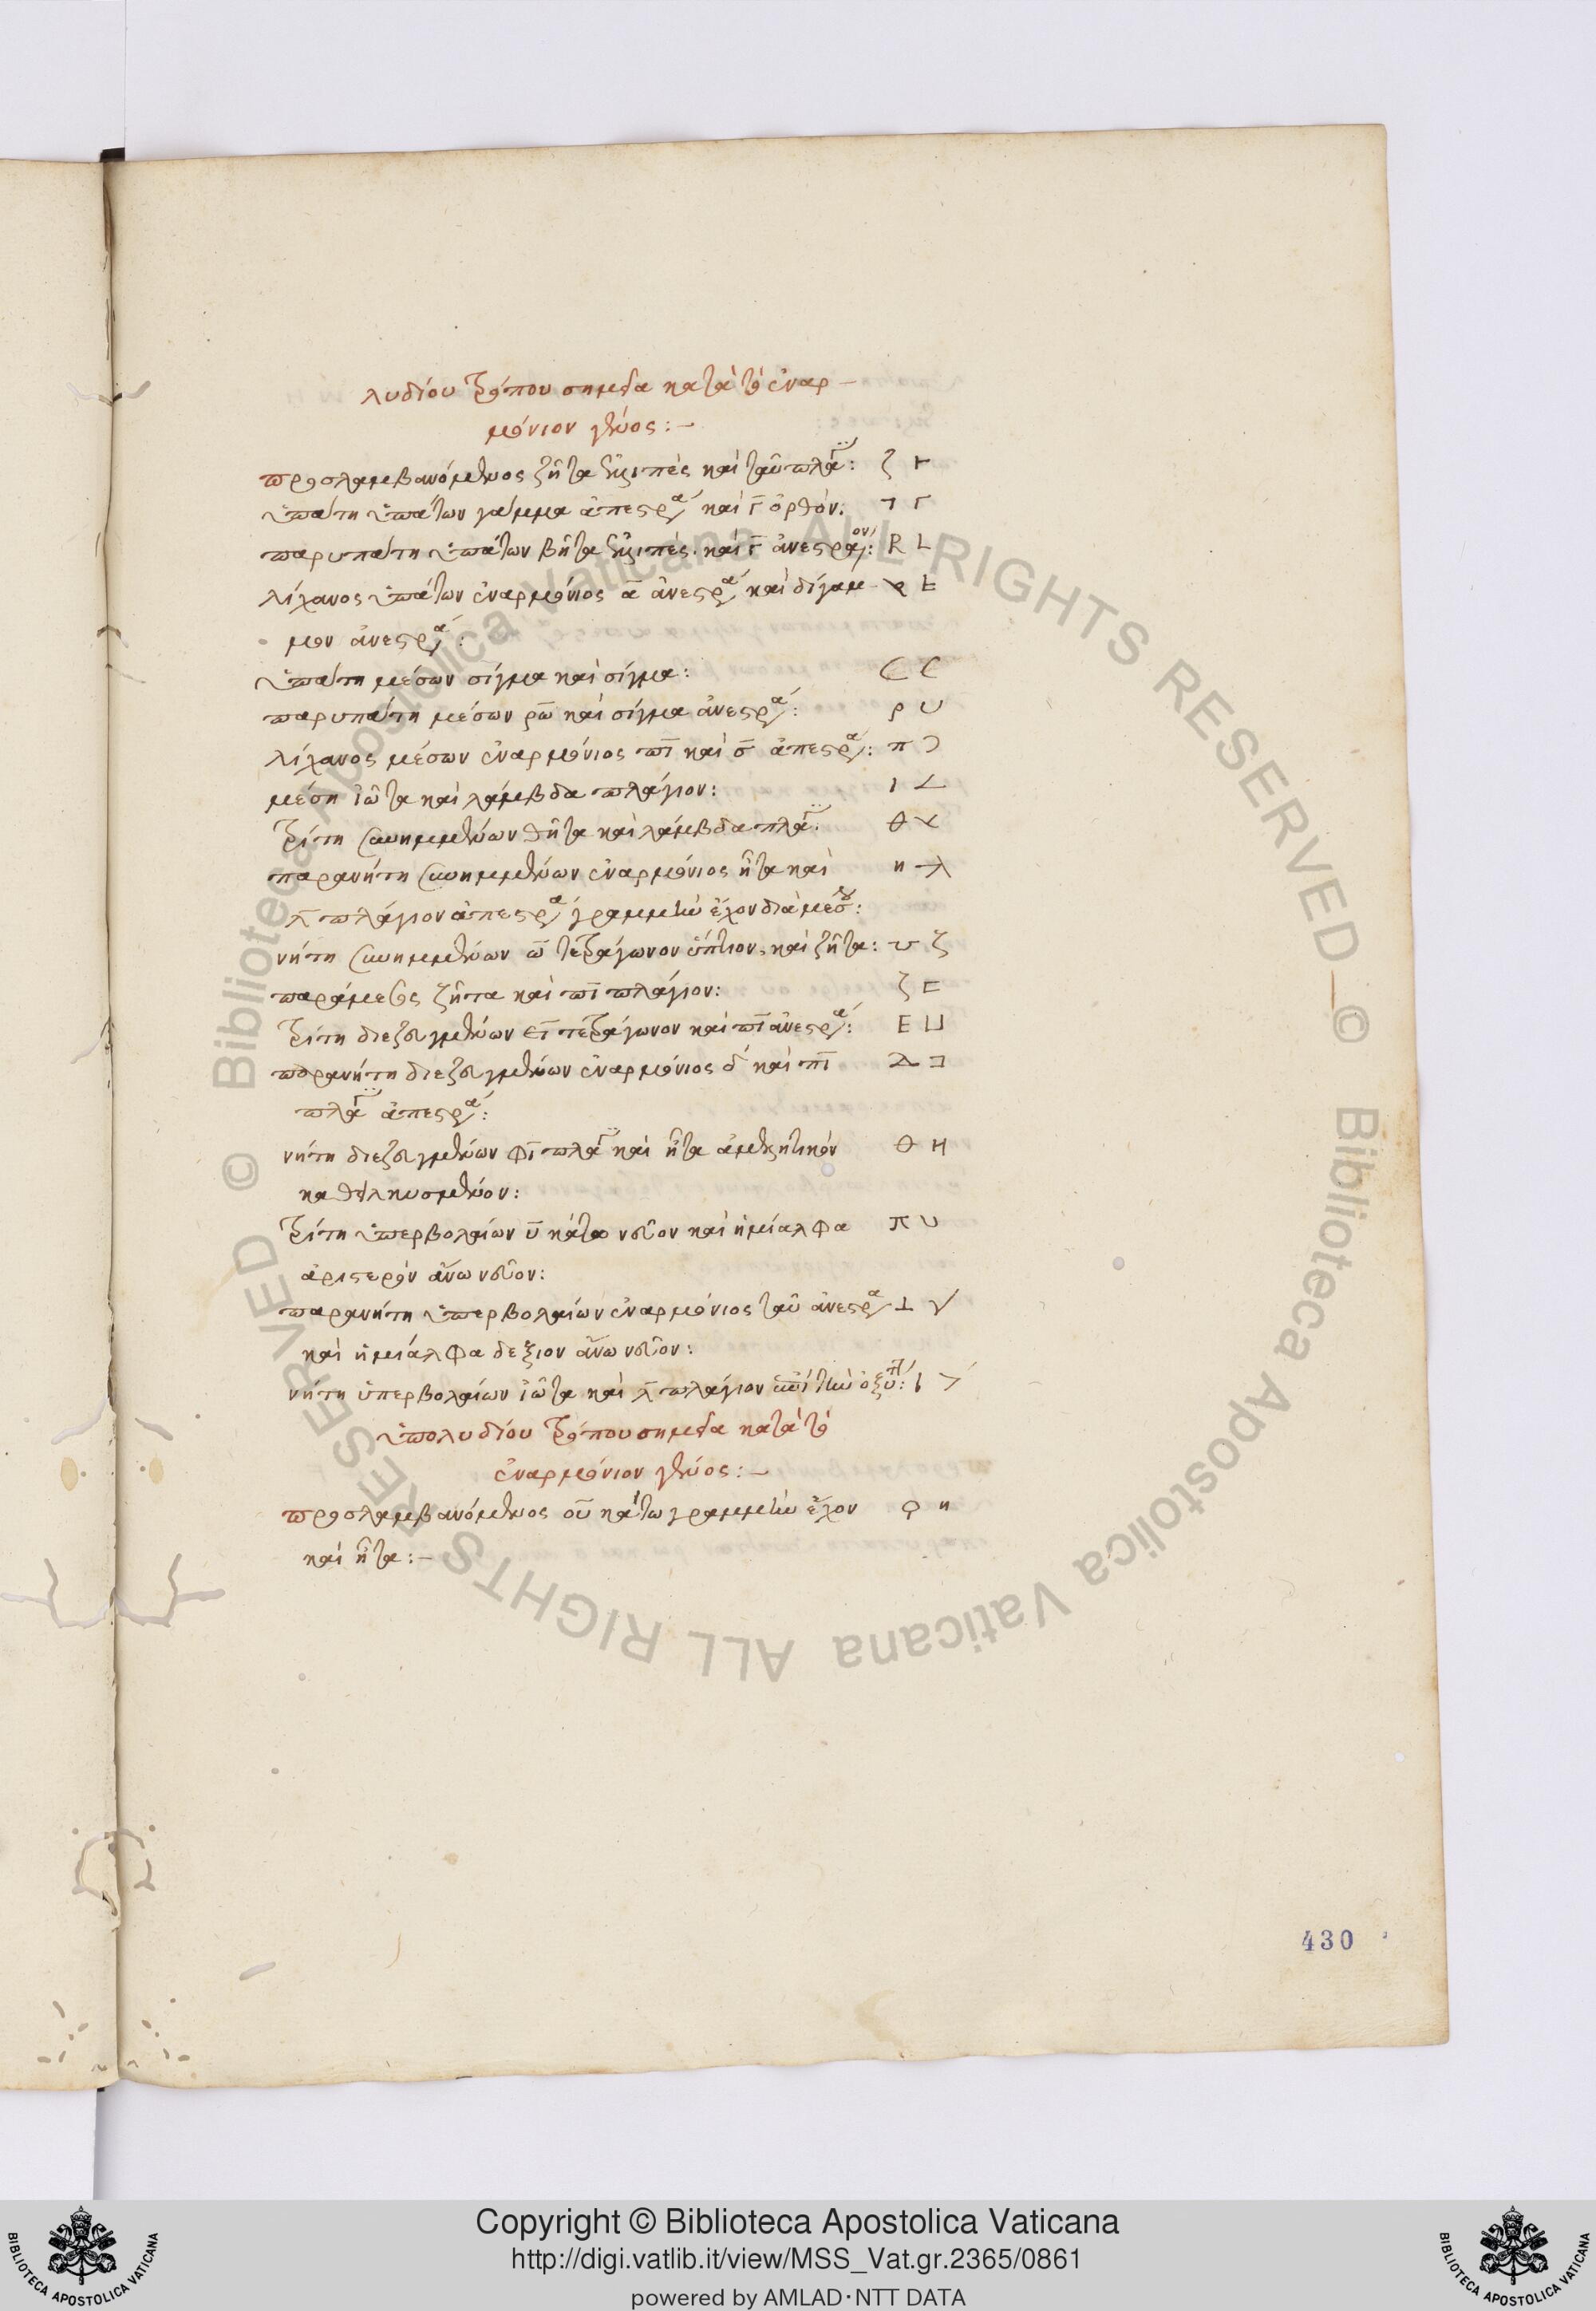 λυδίου τρόπου σημεῖα κατὰ τὸ ἐναρ-
μόνιον γένος:-
προσλαμβανόμενος ζῆτα ἐλλιπὲς καὶ ταῦ πλάγ: ζ Ⱶ
ὑπάτη ὑπάτων γάμμα ἀπεστρα καὶ Γ ὀρθόν: ⅂ Γ
παρυπάτη ὑπάτων βῆτα ἐλλιπὲς. καὶ Γ ἀνεστραμον: R L
λίχανος ὑπάτων ἐναρμόνιος α ἀνεστρα καὶ δίγαμ-
μον ἀνεστρα:
ὑπάτη μέσων σίγμα καὶ σίγμα: C C
παρυπάτη μέσων ρω καὶ σίγμα ἀνεστρα: ρ υ
λίχανος μέσων ἐναρμόνιος πι καὶ σ ἀπεστρα: π Ɔ
μέση ἰῶτα καὶ λάμβδα πλάγιον: ι <
τρίτη συνημμένων θῆτα καὶ λάμβδα πλάγ: θ
παρανήτη συνημμένων ἐναρμόνιος ἦτα καὶ η
λ πλάγιον ἀπεστρα γραμμὴν ἔχον διὰ μέσου:
νήτη συνημμένων ω τετράγωνον ὕπτιον, καὶ ζῆτα: ζ
παράμεσος ζῆτα καὶ πι πλάγιον: ζ ⊏
τρίτη διεζευγμένων ει τετράγωνον καὶ πι ἀνεστρα: E ⊔
παρανήτη διεζευγμένων ἐναρμόνιος δ καὶ πι ⊐
πλάγ ἀπεστρα:
νήτη διεζευγμένων φι πλάγ καὶ ἦτα ἀμελητικὸν Θ Η
καθειλκυσμένον:
τρίτη ὑπερβολαίων υ κάτω νεῦον καὶ ἡμίαλφα
ἀριστερὸν ἄνω νεῦον:
παρανήτη ὑπερβολαίων ἐναρμόνιος ταῦ ἀνεστρα ⊥
καὶ ἡμίαλφα δεξιὸν ἄνω νεῦον:
νήτη ὑπερβολαίων ἰῶτα καὶ λ πλάγιον ἐπὶ τὴν ὀξύτη: ι >′
ὑπολυδίου τρόπου σημεῖα κατὰ τὸ
ἐναρμόνιον γένος:-
προσλαμβανόμενος οὐ κάτω γραμμὴν ἔχον ϙ η
καὶ ἦτα:-
430
Copyright © Biblioteca Apostolica Vaticana
http://digi.vatlib.it/view/MSS_Vat.gr.2365/0861
powered by AMLAD·NTT DATA
BIBLIOTECA APOSTOLICA VATICANA
BIBLIOTECA APOSTOLICA VATICANA
© Biblioteca Apostolica Vaticana ALL RIGHTS RESERVED © Biblioteca Apostolica Vaticana ALL RIGHTS RESERVED